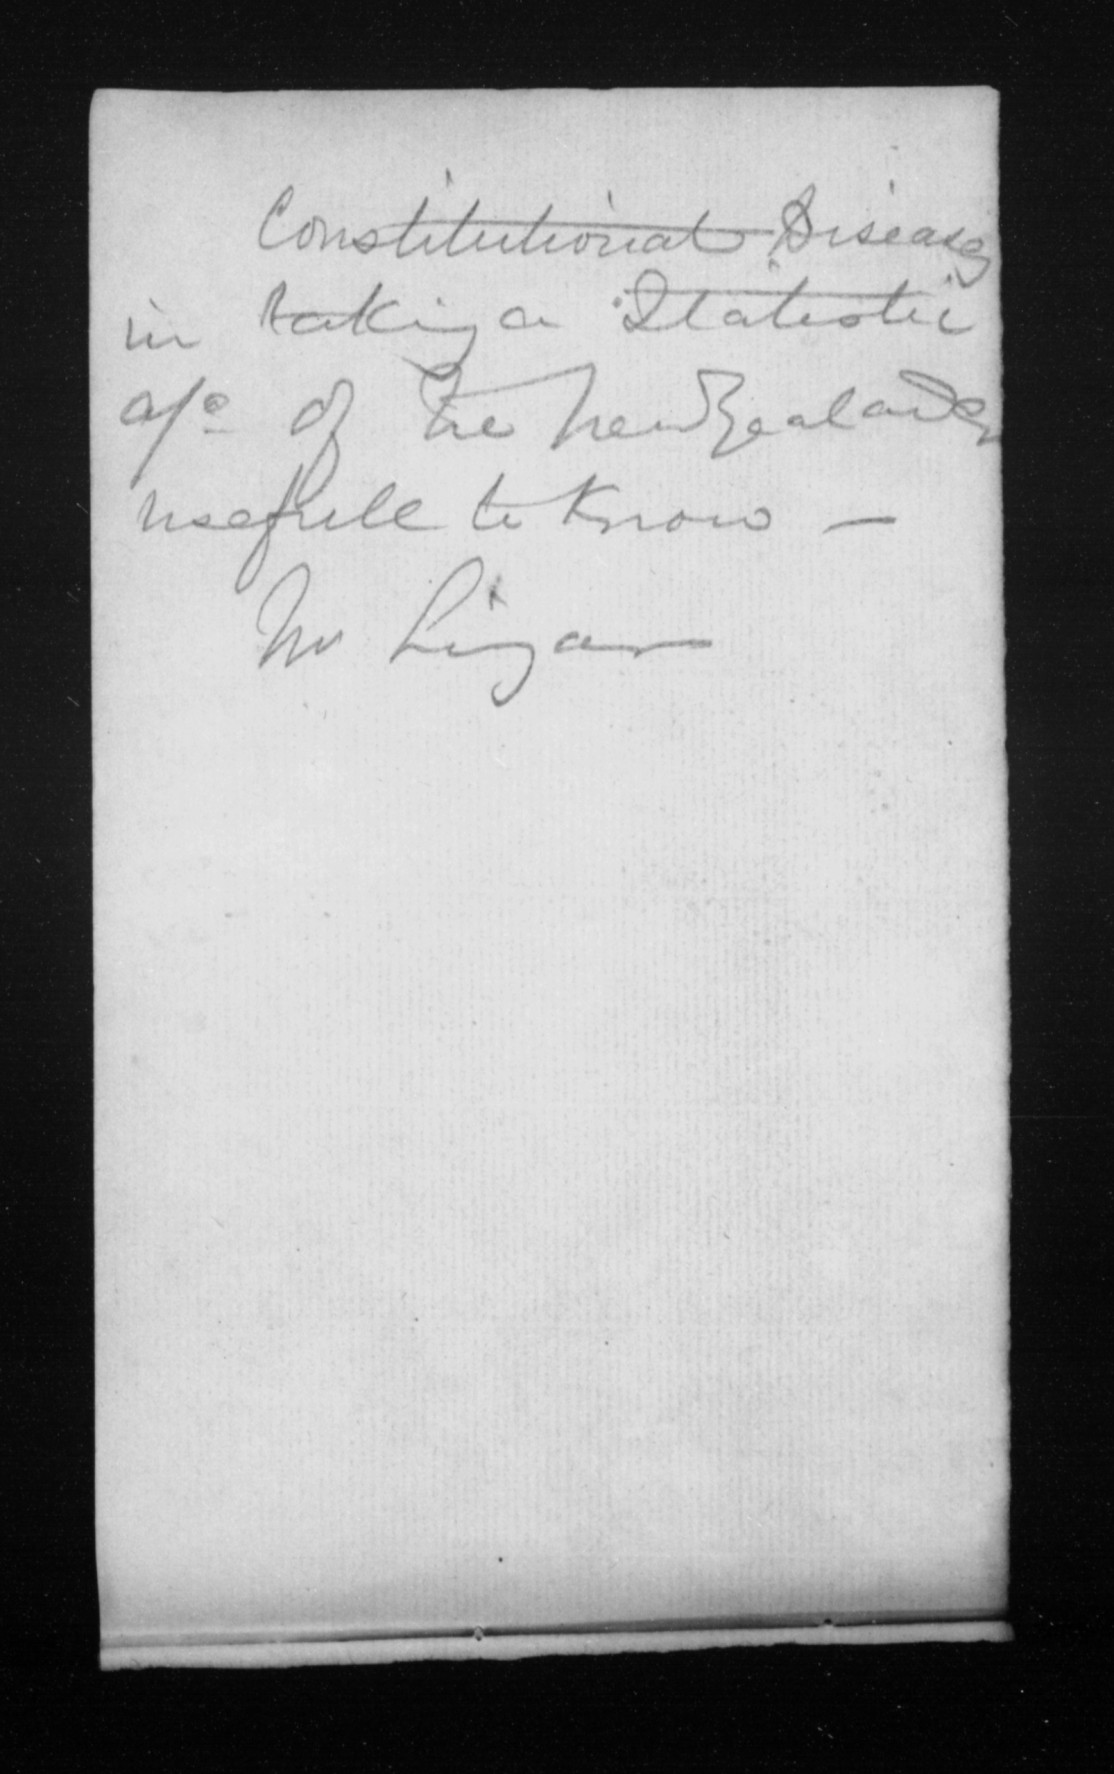 Constitutional Diseases
in taking a Statistic
a/c of the New Zealanders
usefull to know —
Mr Ligar